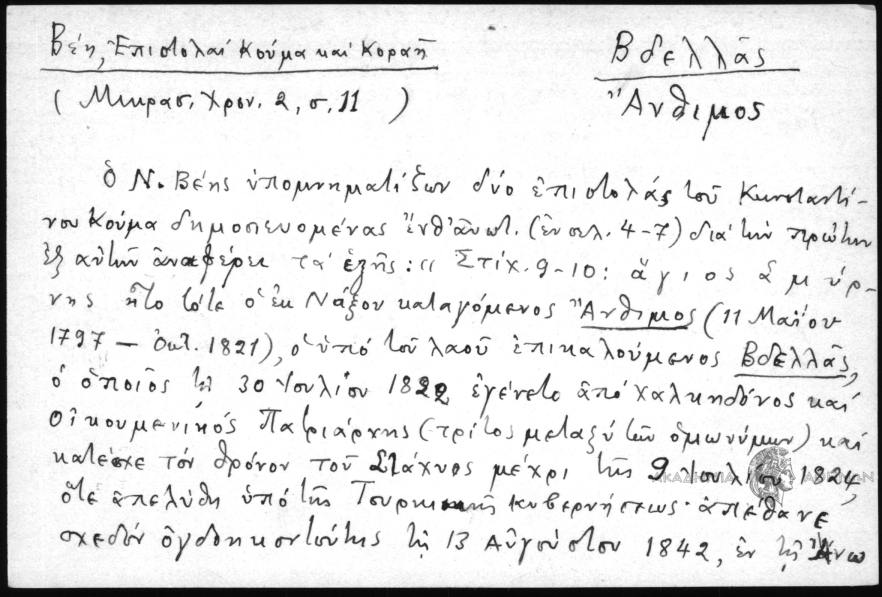 Βέη, Ἐπιστολαί Κούμα καί Κοραῆ
(Μικρασ. Χρον. 2, σ. 11)
Βδελλᾶς
Ἄνθιμος
ὁ Ν. Βέης ὑπομνηματίζων δύο ἐπιστολάς τοῦ Κωνσταντί-
νου Κούμα δημοσιευομένας ἔνθ' ἀνωτ. (ἐν σελ. 4-7) διά τήν πρώτην
ἐξ αὐτῶν ἀναφέρει τά ἑξῆς: "Στίχ. 9-10: ἅγιος Σμύρ-
νης ἦτο τότε ὁ ἐκ Νάξου καταγόμενος Ἄνθιμος (11 Μαΐου
1797 — Ὀκτ. 1821), ὁ ὑπό τοῦ λαοῦ ἐπικαλούμενος Βδελλᾶς,
ὁ ὁποῖος τῇ 30 Ἰουλίου 1822 ἐγένετο ἀπό Χαλκηδόνος καί
Οἰκουμενικός Πατριάρχης (τρίτος μεταξύ τῶν ὁμωνύμων) καί
κατέσχε τόν θρόνον τοῦ Στάχυος μέχρι τῆς 9 Ἰουλίου 1824,
ὅτε ἀπελύθη ὑπό τῆς Τουρκικῆς κυβερνήσεως· ἀπέθανε
σχεδόν ὀγδοηκοντούτης τῇ 13 Αὐγούστου 1842, ἐν τῇ Ἄνω